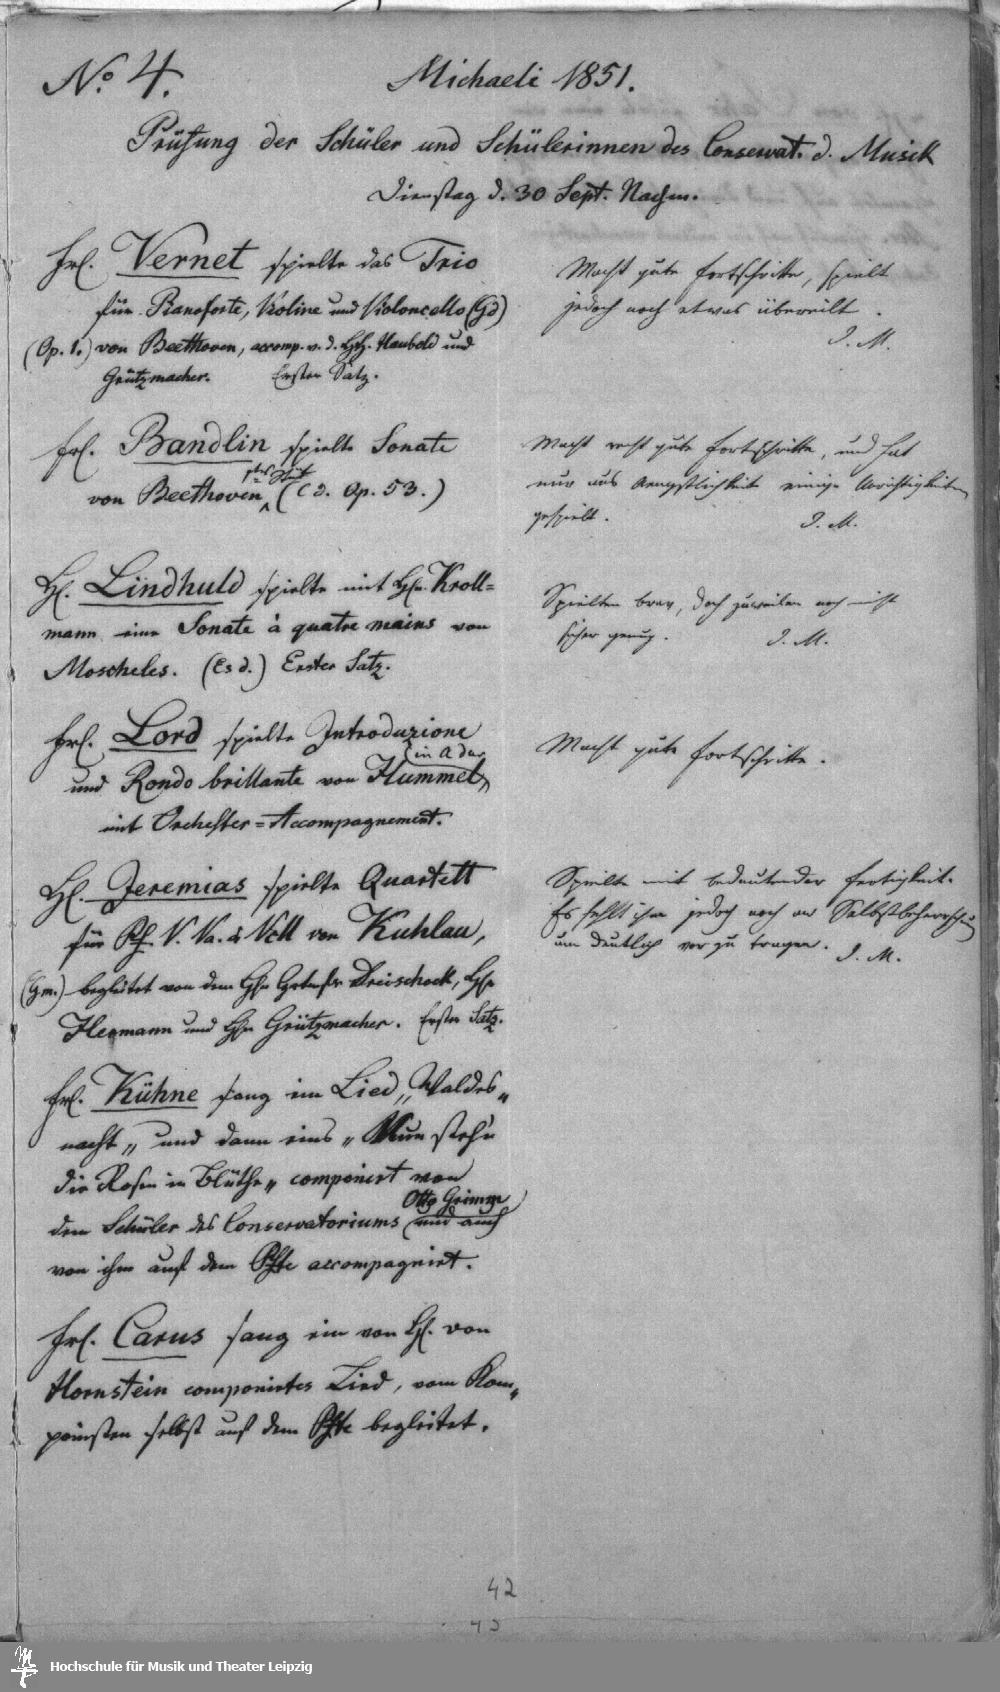 No. 4.
Michaeli 1851.
Prüfung der Schüler und Schülerinnen des Conservat. d. Musik
Dienstag d. 30 Sept. Nachm.
Frl. Vernet spielte das Trio
für Pianoforte, Violine und Violoncello (G d)
(Op. 1.) von Beethoven, accomp. v. d. HH. Haubold und
Grützmacher. Erster Satz.
Macht gute Fortschritte, spielt
jedoch noch etwas übereilt.
I. M.
Frl. Bandlin spielte Sonate
von Beethoven (C d. Op. 53.)
Macht recht gute Fortschritte, und hat
nur aus Aengstlichkeit einige Unrichtigkeiten
gespielt. I. M.
H. Lindhuld spielte mit Hn. Kroll=
mann eine Sonate à quatre mains von
Moscheles. (Es d.) Erster Satz.
Spielten brav, doch zuweilen noch nicht
sicher genug. I. M.
Frl. Lord spielte Introduzione
und Rondo brillante von Hummel
(in A dur)
mit Orchester=Accompagnement.
Macht gute Fortschritte.
H. Jeremias spielte Quartett
für Pf. V. Va. & Vcll von Kuhlau,
(G m.) begleitet von dem Hn Dreischock, Hn
Hermann und Hn Grützmacher. Erster Satz.
Spielte mit bedeutender Fertigkeit.
Es fehlt ihm jedoch noch an Selbstbeherrschung
um deutlich vorzutragen. I. M.
Frl. Kühne sang ein Lied „Waldes„
nacht„ und dann eins „Nun stehn
die Rosen in Blüthe„ componirt von
dem Schüler des Conservatoriums Otto Grimm (und auch
von ihm auf dem Pfte accompagnirt.
Frl. Carus sang ein von H. von
Hornstein componirtes Lied, vom Kom„
ponisten selbst auf dem Pfte begleitet.
42
Hochschule für Musik und Theater Leipzig